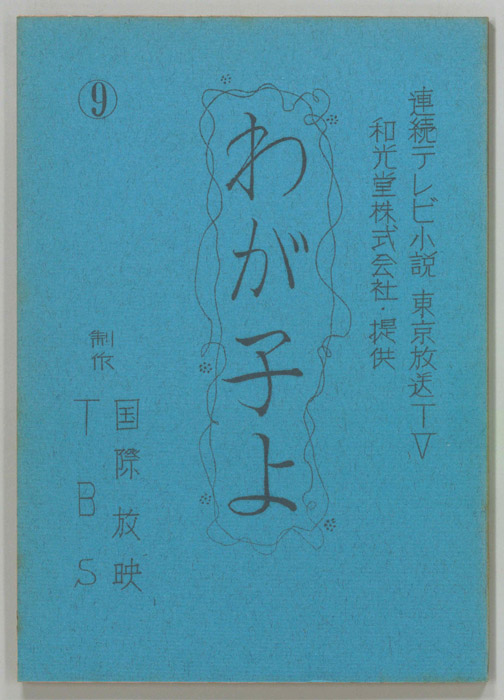 連続テレビ小説 東京放送TV
和光堂株式会社・提供
わが子よ
⑨
制作
国際放映
TBS